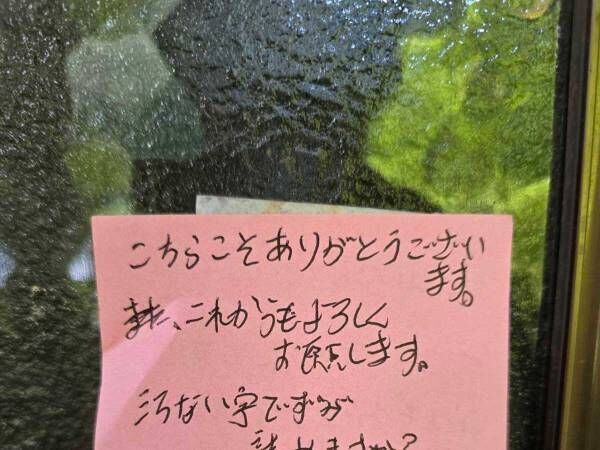 こちらこそありがとうござい
ます。
また、これからもよろしく
お願します。
汚ない字ですが
読めますか?